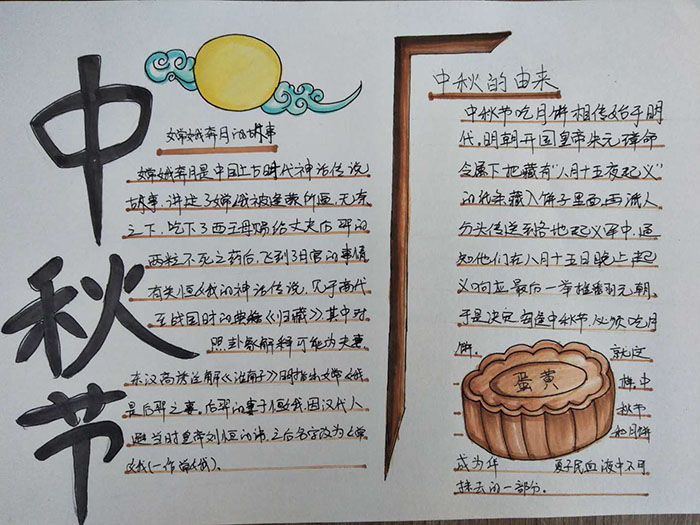 中秋节
嫦娥奔月的故事
嫦娥奔月是中国上古时代神话传说
故事,讲述了嫦娥被逢蒙所逼,无奈
之下,吃下了西王母赐给丈夫后羿的
两粒不死之药后,飞到了月宫的事情
有关恒娥的神话传说,见于商代
至战国时的典籍《归藏》其中对
照卦象解释可能为夫妻
东汉高诱注解《淮南子》明指出嫦娥
是后羿之妻,后羿的妻子恒娥,因汉代人
避当时皇帝刘恒的讳,之后名字改为嫦
娥(一作常娥).
中秋的由来
中秋节吃月饼相传始于明
代,明朝开国皇帝朱元璋命
令属下把藏有"八月十五夜起义"
的纸条藏入饼子里面,再派人
分头传送到各地起义军中,通
知他们在八月十五日晚上起
义响应,最后一举推翻元朝,
于是决定每逢中秋节,必须吃月
饼. 就这
样中
秋节
和月饼
蛋黄
成为华 夏子民血液中不可
抹去的一部分.